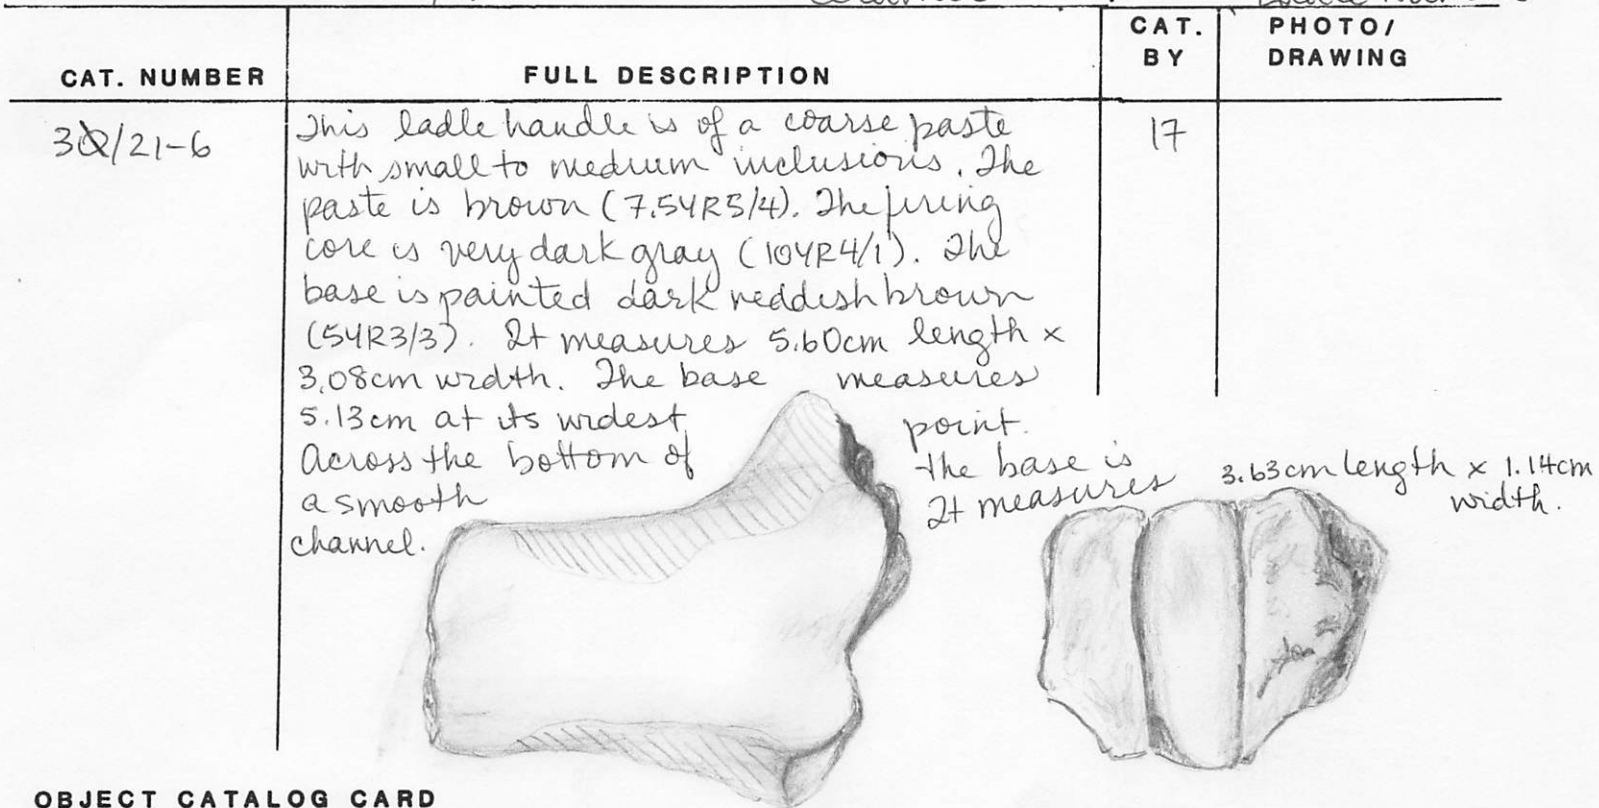 CAT. NUMBER
FULL DESCRIPTION
CAT.
BY
PHOTO/
DRAWING
/21-6
17
This ladle handle is of a coarse paste
with small to medium inclusions. The
paste is brown (7.5YR5/4). The firing
core is very dark gray (10YR4/1). The
base is painted dark reddish brown
(5YR3/3). It measures 5.60cm length x
3.08cm width. The base measures
5.13cm at its widest point.
Across the bottom of the base is
a smooth
channel. It measures 3.63cm length x 1.14cm
width.
OBJECT CATALOG CARD